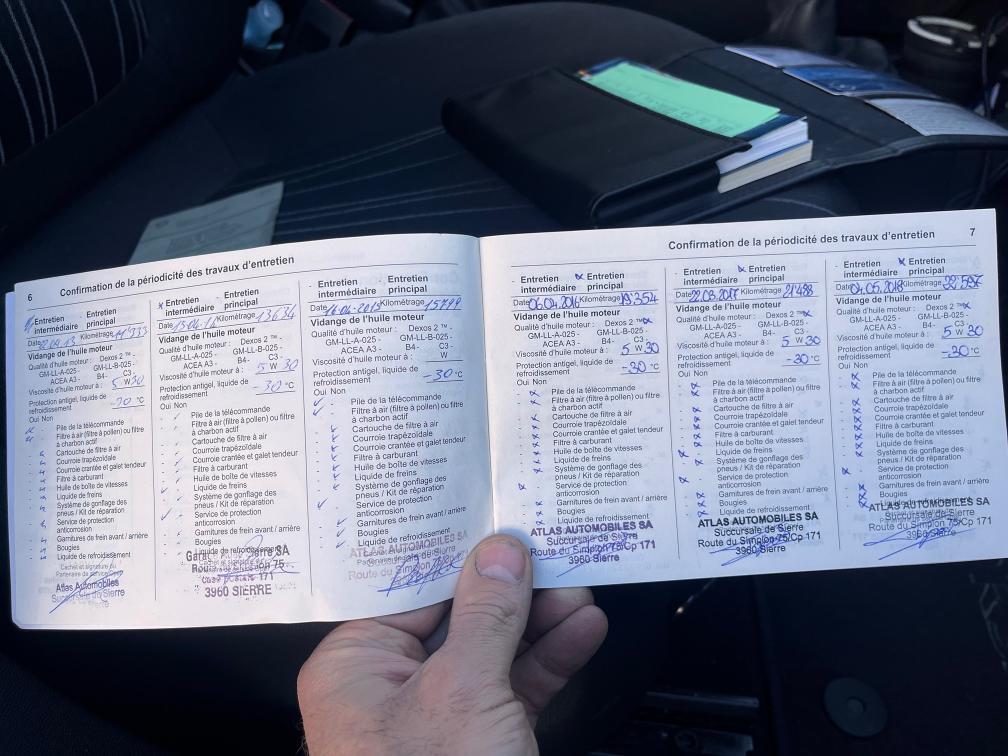 6 Confirmation de la périodicité des travaux d'entretien
Entretien intermédiaire - Entretien principal
Date Kilométrage
Vidange de l'huile moteur
Qualité d'huile moteur : Dexos 2 ™ -
GM-LL-A-025 - GM-LL-B-025 -
ACEA A3 - B4- C3 -
Viscosité d'huile moteur à : 5 W 30
Protection antigel, liquide de
refroidissement °C
Oui Non
Pile de la télécommande
Filtre à air (filtre à pollen) ou filtre
à charbon actif
Cartouche de filtre à air
Courroie trapézoïdale
Courroie crantée et galet tendeur
Filtre à carburant
Huile de boîte de vitesses
Liquide de freins
Système de gonflage des
pneus / Kit de réparation
Service de protection
anticorrosion
Garnitures de frein avant / arrière
Bougies
Liquide de refroidissement
Cachet et signature du
Atlas Automobiles
Succursale de Sierre
Entretien intermédiaire - Entretien principal
Date Kilométrage 13634
Vidange de l'huile moteur
Qualité d'huile moteur : Dexos 2 ™ -
GM-LL-A-025 - GM-LL-B-025 -
ACEA A3 - B4- C3 -
Viscosité d'huile moteur à : 5 W 30
Protection antigel, liquide de
refroidissement -30 °C
Oui Non
Pile de la télécommande
Filtre à air (filtre à pollen) ou filtre
à charbon actif
Cartouche de filtre à air
Courroie trapézoïdale
Courroie crantée et galet tendeur
Filtre à carburant
Huile de boîte de vitesses
Liquide de freins
Système de gonflage des
pneus / Kit de réparation
Service de protection
anticorrosion
Garnitures de frein avant / arrière
Bougies
Liquide de refroidissement
Sierre SA
Simplon 75
Case postale 171
3960 SIERRE
- Entretien intermédiaire - Entretien principal
Date Kilométrage
Vidange de l'huile moteur
Qualité d'huile moteur : Dexos 2 ™ -
GM-LL-A-025 - GM-LL-B-025 -
ACEA A3 - B4- C3 -
Viscosité d'huile moteur à : W
Protection antigel, liquide de
refroidissement -30 °C
Oui Non
Pile de la télécommande
Filtre à air (filtre à pollen) ou filtre
à charbon actif
Cartouche de filtre à air
Courroie trapézoïdale
Courroie crantée et galet tendeur
Filtre à carburant
Huile de boîte de vitesses
Liquide de freins
Système de gonflage des
pneus / Kit de réparation
Service de protection
anticorrosion
Garnitures de frein avant / arrière
Bougies
Liquide de refroidissement
ATLAS AUTOMOBILES SA
Succursale de Sierre
Route du Simplon
Confirmation de la périodicité des travaux d'entretien 7
- Entretien intermédiaire Entretien principal
Date 06.04.2016 Kilométrage 19'354
Vidange de l'huile moteur
Qualité d'huile moteur : Dexos 2 ™
GM-LL-A-025 - GM-LL-B-025 -
ACEA A3 - B4- C3 -
Viscosité d'huile moteur à : 5 W 30
Protection antigel, liquide de
refroidissement -30 °C
Oui Non
Pile de la télécommande
Filtre à air (filtre à pollen) ou filtre
à charbon actif
Cartouche de filtre à air
Courroie trapézoïdale
Courroie crantée et galet tendeur
Filtre à carburant
Huile de boîte de vitesses
Liquide de freins
Système de gonflage des
pneus / Kit de réparation
Service de protection
anticorrosion
Garnitures de frein avant / arrière
Bougies
Liquide de refroidissement
ATLAS AUTOMOBILES SA
Succursale de Sierre
Route du Simplon 75/Cp 171
3960 Sierre
- Entretien intermédiaire Entretien principal
Date 22.03.2017 Kilométrage 21'488
Vidange de l'huile moteur
Qualité d'huile moteur : Dexos 2 ™
GM-LL-A-025 - GM-LL-B-025 -
ACEA A3 - B4- C3 -
Viscosité d'huile moteur à : 5 W 30
Protection antigel, liquide de
refroidissement -30 °C
Oui Non
Pile de la télécommande
Filtre à air (filtre à pollen) ou filtre
à charbon actif
Cartouche de filtre à air
Courroie trapézoïdale
Courroie crantée et galet tendeur
Filtre à carburant
Huile de boîte de vitesses
Liquide de freins
Système de gonflage des
pneus / Kit de réparation
Service de protection
anticorrosion
Garnitures de frein avant / arrière
Bougies
Liquide de refroidissement
ATLAS AUTOMOBILES SA
Succursale de Sierre
Route du Simplon 75/Cp 171
3960 Sierre
- Entretien intermédiaire Entretien principal
Date 04.05.2018 Kilométrage
Vidange de l'huile moteur
Qualité d'huile moteur : Dexos 2 ™
GM-LL-A-025 - GM-LL-B-025 -
ACEA A3 - B4- C3 -
Viscosité d'huile moteur à : 5 W 30
Protection antigel, liquide de
refroidissement -30 °C
Oui Non
Pile de la télécommande
Filtre à air (filtre à pollen) ou filtre
à charbon actif
Cartouche de filtre à air
Courroie trapézoïdale
Courroie crantée et galet tendeur
Filtre à carburant
Huile de boîte de vitesses
Liquide de freins
Système de gonflage des
pneus / Kit de réparation
Service de protection
anticorrosion
Garnitures de frein avant / arrière
Bougies
Liquide de refroidissement
ATLAS AUTOMOBILES SA
Succursale de Sierre
Route du Simplon 75/Cp 171
3960 Sierre